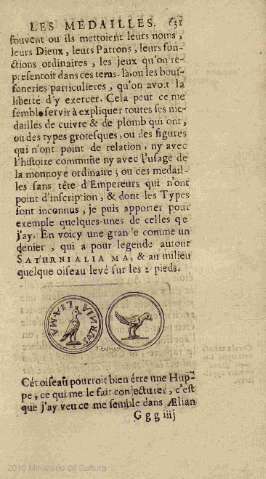 LES MEDAILLES.
souvent ou ils mettoient leurs noms,
leurs Dieux, leurs Patrons, leurs fon-
ctions ordinaires, les jeux qu'on re-
presentoit dans ces tems-la, ou les bouf-
foneries particulieres, qu'on avoit la
liberté d'y exercer. Cela peut ce me
semble servir à expliquer toutes les me-
dailles de cuivre & de plomb qui ont,
ou des types grotesques, ou des figures
qui n'ont point de relation, ny avec
l'histoire commune ny avec l'usage de
la monnoye ordinaire; ou ces medail-
les sans tête d'Empereurs qui n'ont
point d'inscription, & dont les Types
sont inconnus, je puis apporter pour
exemple quelques-unes de celles que
j'ay. En voicy une grande comme un
denier, qui a pour legende autour
SATURNIALIA MA, & au milieu
quelque oiseau levé sur les 2 pieds.
Cét oiseau pourroit bien être une Hup-
pe, ce qui me le fait conjecturer, c'est
que j'ay veu ce me semble dans Ælian
G g g iiij
2010 Ministerio de Cultura